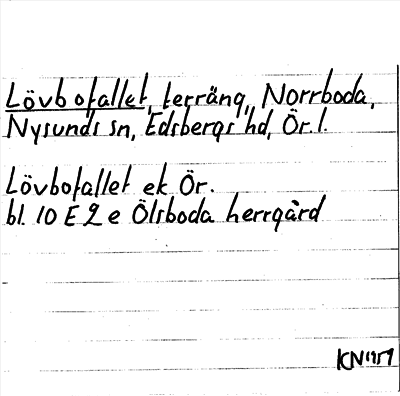 Lövbofallet, terräng, Norrboda,
Nysunds sn, Edsbergs hd, Ör. l.
Lövbofallet ek Ör.
bl. 10 E 2 e Ölsboda herrgård